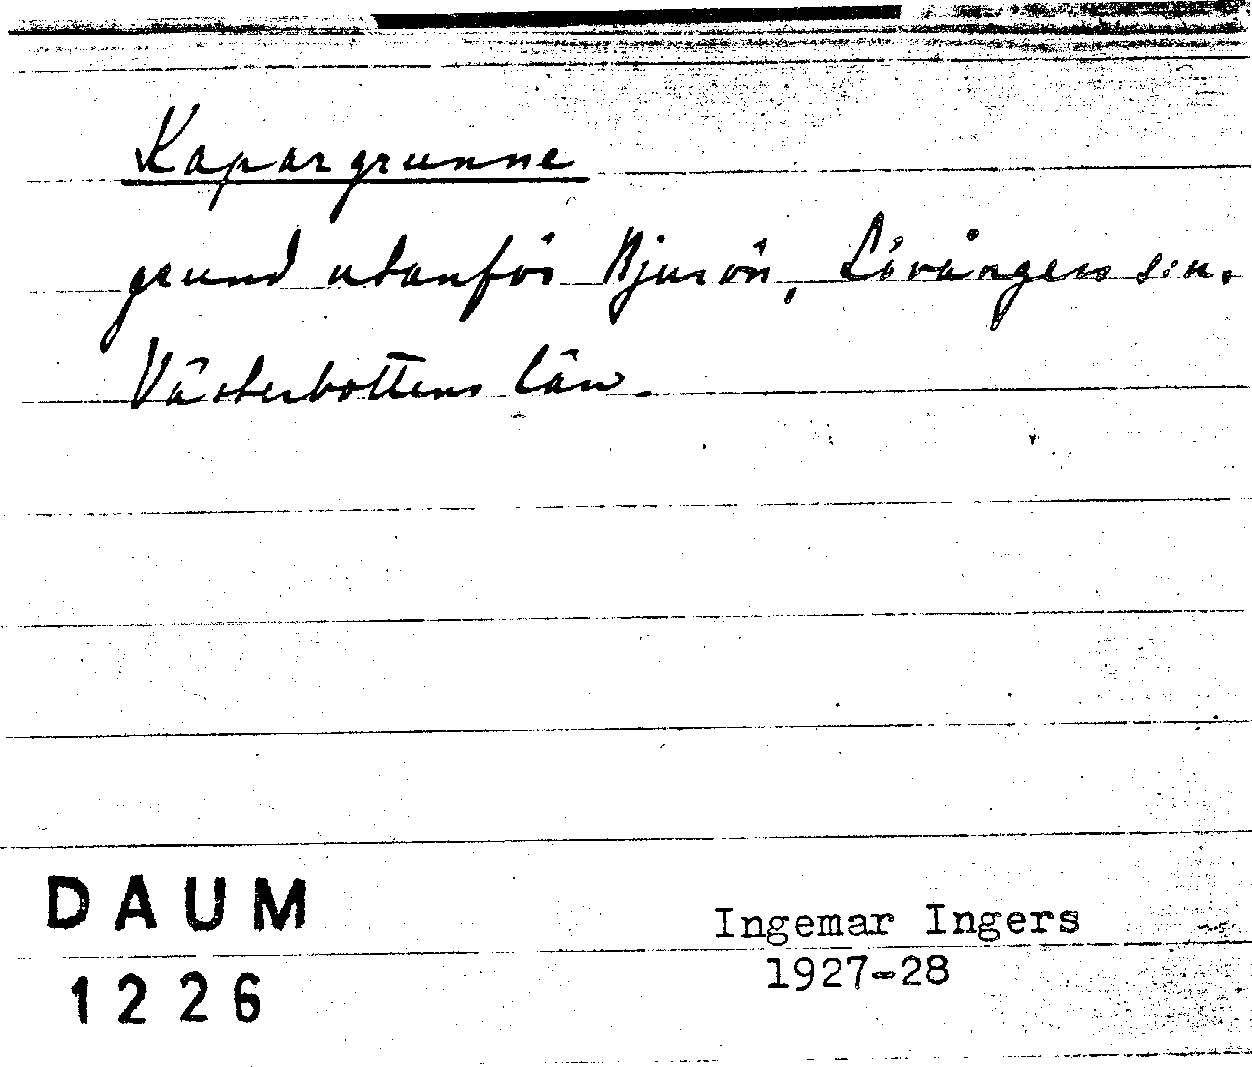 Kapargrunne
grund utanför Bjurön, Lövångers s:n.
Västerbottens län.
DAUM
1226
Ingemar Ingers
1927-28